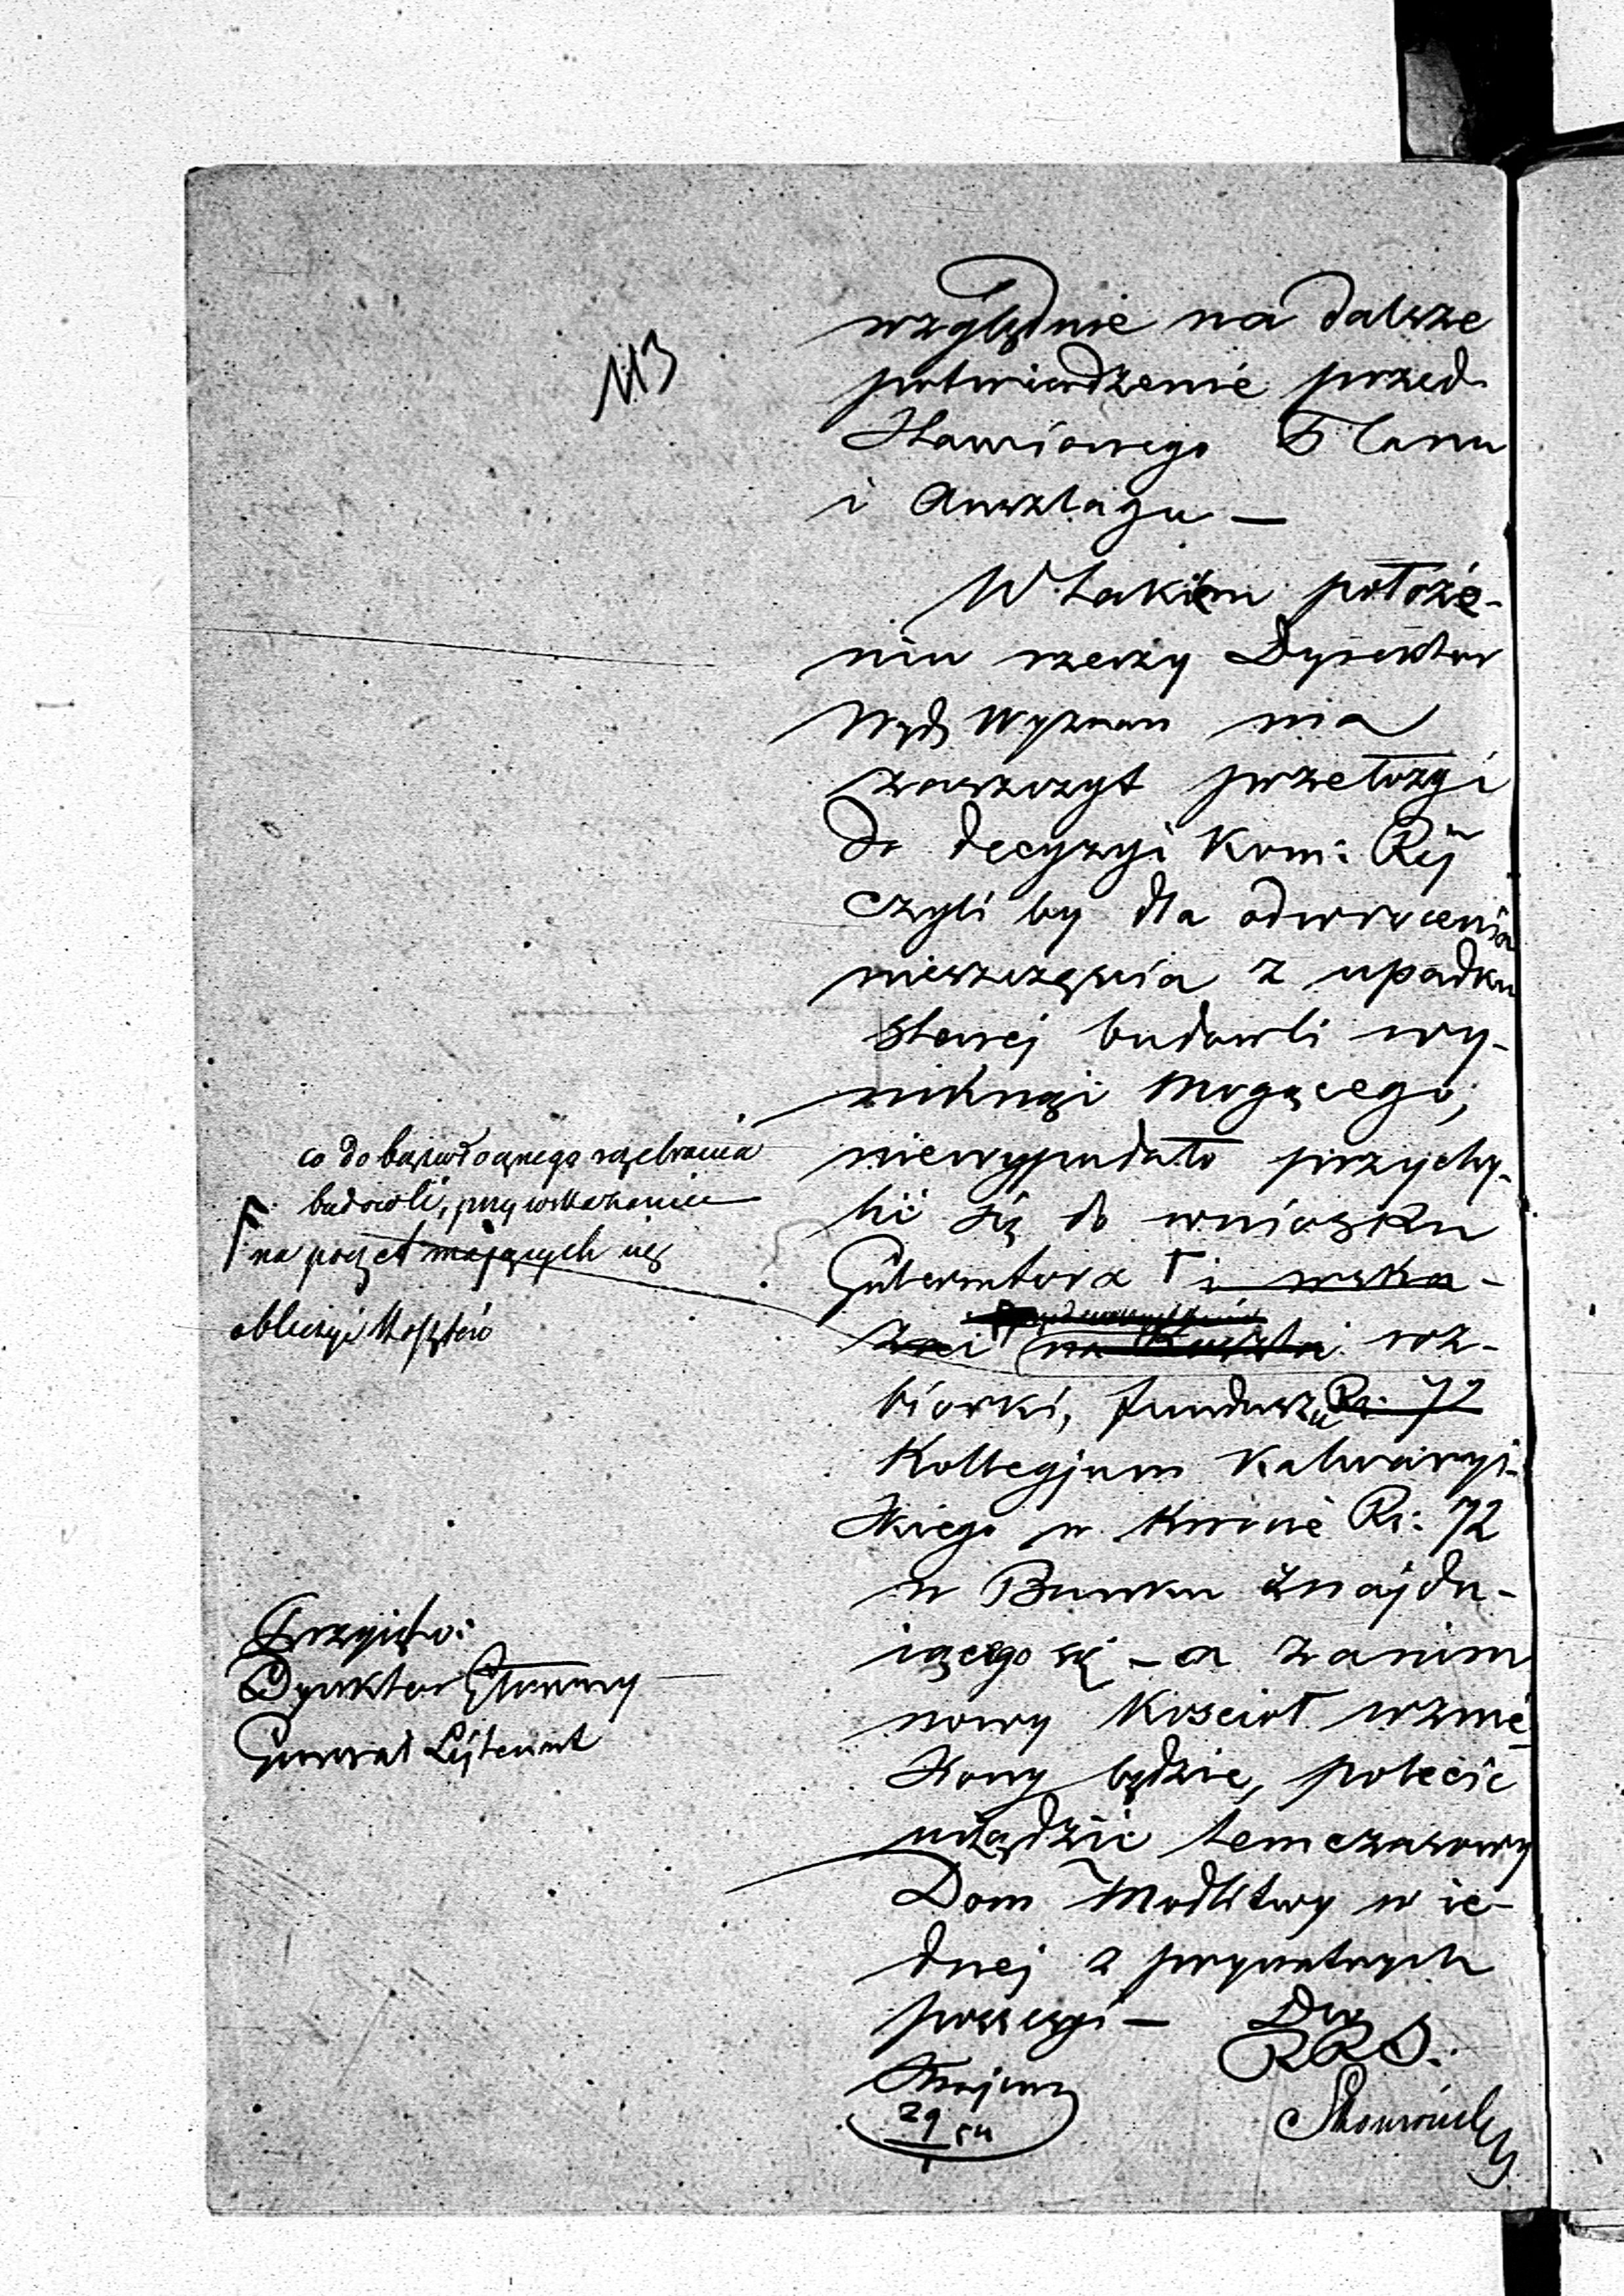 113
względnie na dalsze
potwierdzenie przed-
stawionego Planu
i Anszlagu —
W takiem położe-
niu rzeczy Dyrektor
Wydz Wyznań ma
zaszczyt przełożyć
do decyzyi Kom: Rz
czyli by dla odwrócenia
nieszczęścia z upadku
starej budowli wy-
niknąć mogącego,
niewypadało przychy-
lić się do wniosku
Gubernatora i wska-
zać na koszta roz-
biórki, funduszu Rs: 72
Kollegjum Kalwaryj-
skiego w kwocie Rs: 72
w Banku znajdu-
iącego się — a zanim
nowy Kościół wznie-
siony będzie, polecić
urządzić temczasowy
Dom Modlitwy w ie-
dnej z prywatnych
possessyi —
co do bezzwłocznego rozebrania
budowli, przy wskazaniu
na poczet mających się
obliczyć kosztów
Przyjęto:
Dyrektor Główny
Generał Lejtenant
29
54
1
RRS.